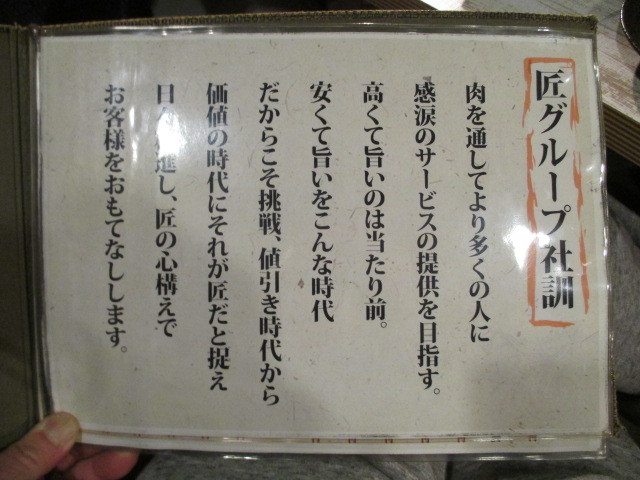 匠グループ社訓
肉を通してより多くの人に
『感涙のサービスの提供を目指す。
高くて旨いのは当たり前。
安くて旨いをこんな時代
だからこそ挑戦、値引き時代から
価値の時代にそれが匠だと捉え
日 進し、匠の心構えで
お客様をおもてなしします。